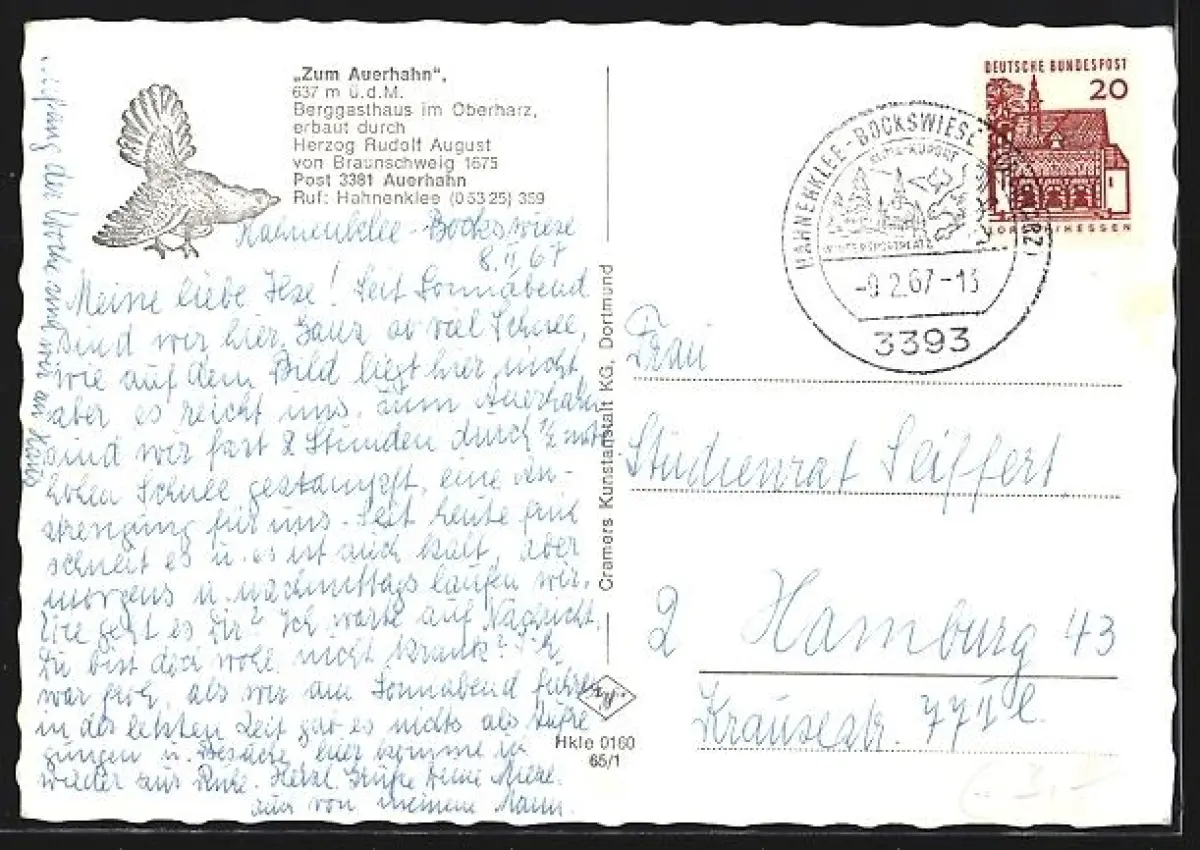 „Zum Auerhahn",
637 m ü.d.M.
Berggasthaus im Oberharz,
erbaut durch
Herzog Rudolf August
von Braunschweig 1675
Post 3381 Auerhahn
Ruf: Hahnenklee (05325) 359
Hahnenklee-Bockswiese
8.II.67
Meine liebe Ilse! Seit Sonnabend
sind wir hier. Ganz so viel Schnee,
wie auf dem Bild liegt hier nicht
aber es reicht uns. Zum Auerhahn
sind wir fast 2 Stunden durch ½ mtr
hohen Schnee gestampft, eine An-
strengung für uns. Seit heute früh
schneit es u. es ist auch kalt, aber
morgens u. nachmittags laufen wir.
Wie geht es Dir? Ich warte auf Nachricht.
Du bist doch wohl nicht krank? Ich
war froh, als wir am Sonnabend fuhren
in der letzten Zeit gab es nichts als Aufre
gungen u. Besuche, hier komme ich
wieder zur Ruhe. Herzl. Grüße Deine
auch von meinem Mann.
der Woche sind wir
Cramers Kunstanstalt KG, Dortmund
Hkle 0160
65/1
DEUTSCHE BUNDESPOST
20
LORSCH/HESSEN
HAHNENKLEE-BOCKSWIESE
HEILKLIM. KURORT
WINTERSPORTPLATZ
-9.2.67-13
3393
Frau
Studienrat Seiffert
2 Hamburg 43
Krausestr. 77 II l.